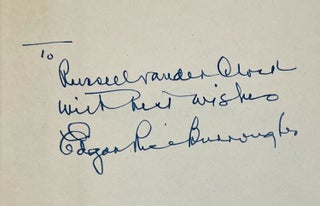 To
Russell vander Clock
with best wishes
Edgar Rice Burroughs